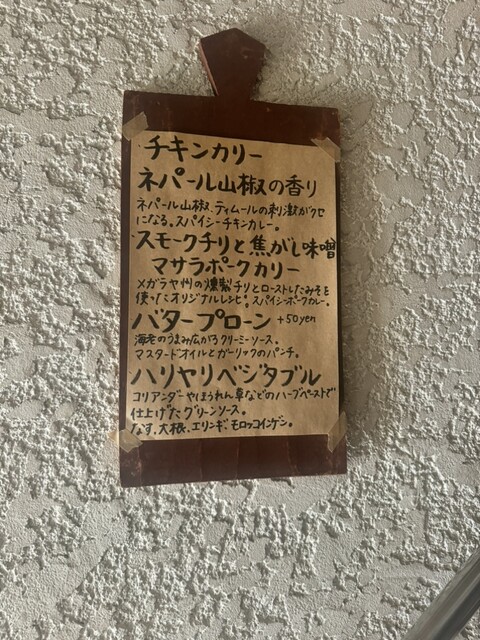 チキンカリー
ネパール山椒の香り
ネパール山椒、ティムールの刺激がクセ
になる。スパイシーチキンカレー。
スモークチリと焦がし味噌
マサラポークカリー
メガラヤ州の燻製チリとローストしたみそを
使ったオリジナルレシピ。スパイシーポークカレー。
バタープローン +50yen
海老のうまみ広がるクリーミーソース。
マスタードオイルとガーリックのパンチ。
ハリヤリベジタブル
コリアンダーやほうれん草などのハーブペーストで
仕上げたグリーンソース。
なす、大根、エリンギ、モロッコインゲン。